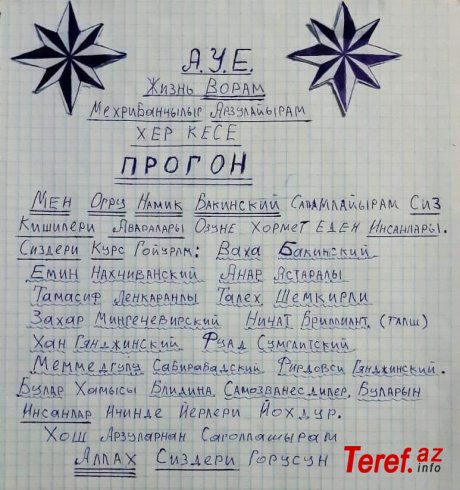 А.У.Е.
Жизнь Ворам
Мехрибанчылыг Арзулайырам
ХЕР КЕСЕ
ПРОГОН
Мен Огру Намик Бакинский Саламлайырам Сиз
Кишилери Аваралары Озуне Хормет Еден Инсанлары.
Сиздери Курс Гойурам: Ваха Бакинский
Емин Нахчиванский Анар Астаралы
Тамасиф Ленкаранлы Талех Шемкирли
Захар Мингечевирский Ничат Бриллиант. (талш)
Хан Гянджинский Фуад Сумгаитский
Меммедгулу Сабиравадский Фирдовси Гянджинский.
Булар Хамысы Блидина, Самозванесдилер, Буларын
Инсанлар Ичинде Йерлери Йохдур.
Хош Арзуларнан Саголлашырам
Аллах Сиздери Горусун
Teref.az
.info